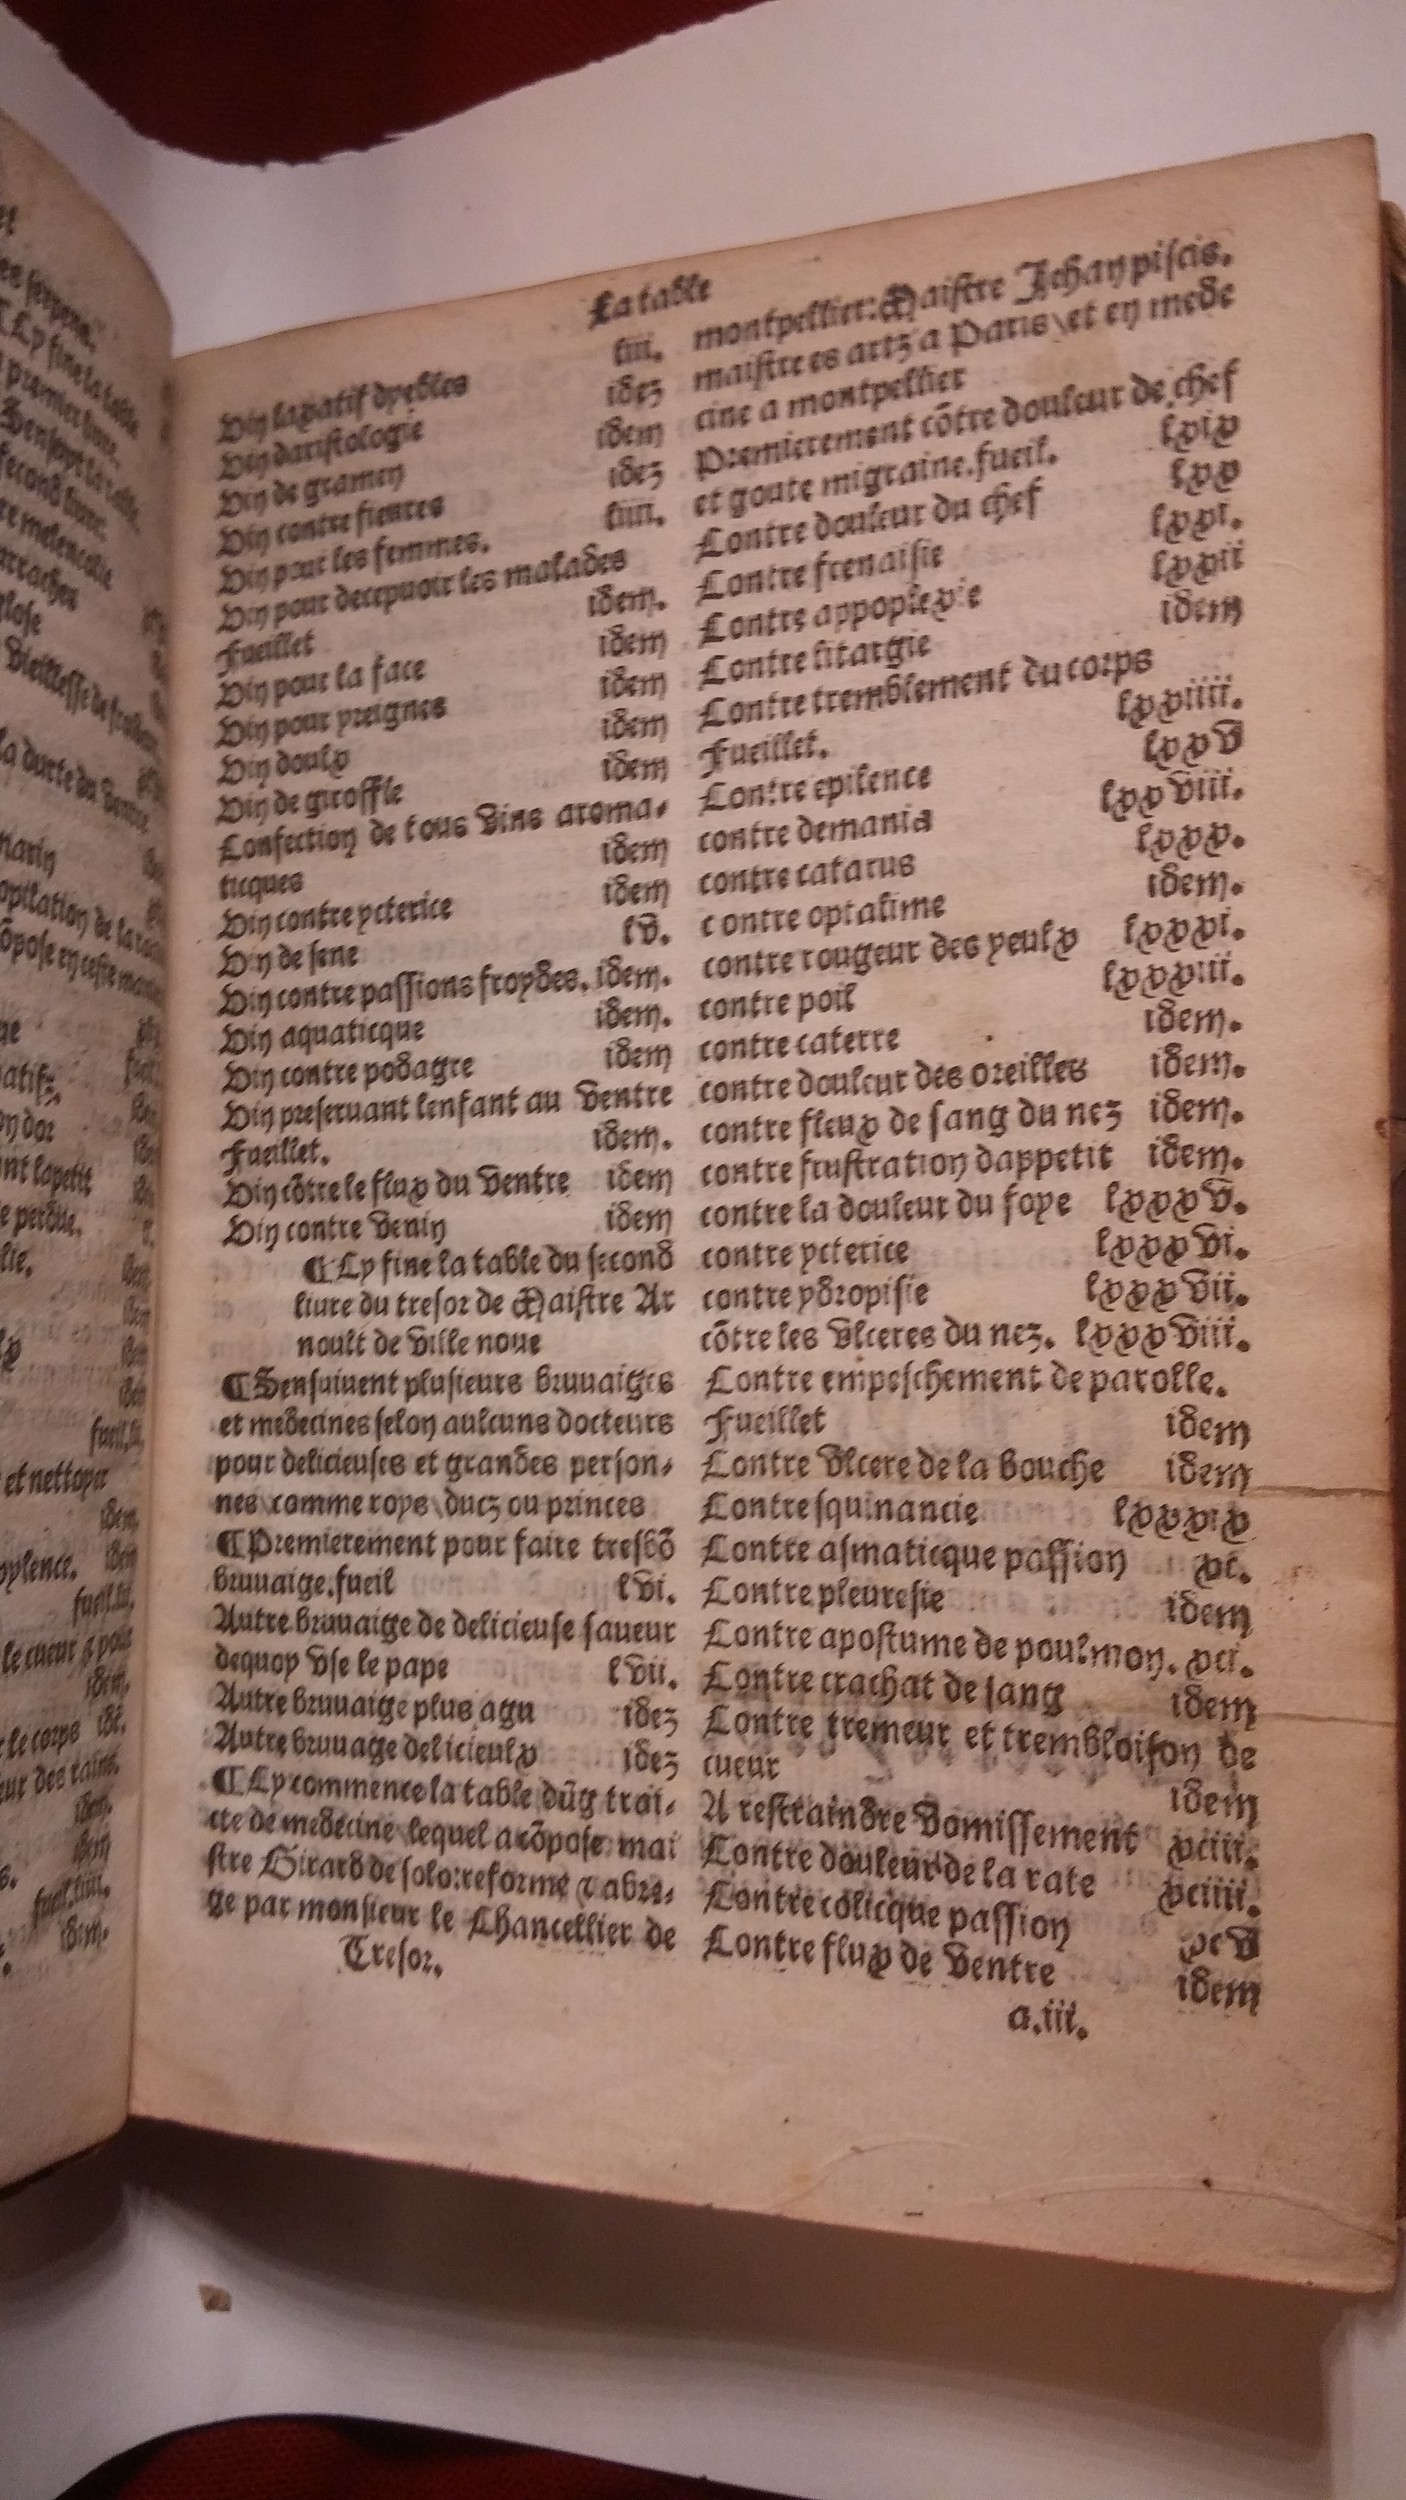 La table
Vin laxatif dyebles liii.
Vin daristologie idez
Vin de gramen idem
Vin contre fieures idez
Vin pour les femmes. liiii.
Vin pour decepuoir les malades
Fueillet idem.
Vin pour la face idem
Vin pour preignes idem
Vin doulx idem
Vin de giroffle idem
Confection de tous vins aroma-
ticques idem
Vin contre ycterice idem
Vin de sene lv.
Vin contre passions froydes. idem.
Vin aquaticque idem.
Vin contre podagre idem
Vin preseruant lenfant au ventre
Fueillet. idem.
Vin cõtre le flux du ventre idem
Vin contre venin idem
¶ Cy fine la table du second
liure du tresor de Maistre Ar
noult de ville noue
¶ Sensuiuent plusieurs bruuaiges
et medecines selon aulcuns docteurs
pour delicieuses et grandes person-
nes comme roys ducz ou princes
¶ Premierement pour faire tresbõ
bruuaige. fueil lvi.
Autre bruuaige de delicieuse saueur
dequoy vse le pape lvii.
Autre bruuaige plus agu idez
Autre bruuage delicieulx idez
¶ Cy commence la table dũg trai-
cte de medecine lequel a cõpose mai
stre Girard de solo: reforme ⁊ abre-
ge par monsieur le Chancellier de
Tresor.
montpellier: Maistre Jehan piscis.
maistre es artz a Paris et en mede
cine a montpellier
Premierement cõtre douleur de chef
et goute migraine. fueil. lxix
Contre douleur du chef lxx
Contre frenaisie lxxi.
Contre appoplexie lxxii
Contre litargie idem
Contre tremblement du corps
Fueillet. lxxiiii.
Contre epilence lxxv
contre demania lxxviii.
contre catarus lxxx.
contre optalime idem.
contre rougeur des yeulx lxxxi.
contre poil lxxxiii.
contre caterre idem.
contre douleur des oreilles idem.
contre fleux de sang du nez idem.
contre frustration dappetit idem.
contre la douleur du foye lxxxv.
contre ycterice lxxxvi.
contre ydropisie lxxxvii.
cõtre les vlceres du nez. lxxxviii.
Contre empeschement de parolle.
Fueillet idem
Contre vlcere de la bouche idem
Contre squinancie lxxxix
Contre asmaticque passion xc.
Contre pleuresie idem
Contre apostume de poulmon. xci.
Contre crachat de sang idem
Contre tremeur et trembloison de
cueur idem
A restraindre vomissement xciii.
Contre douleur de la rate xciiii.
Contre colicque passion xcv
Contre flux de ventre idem
a.iii.